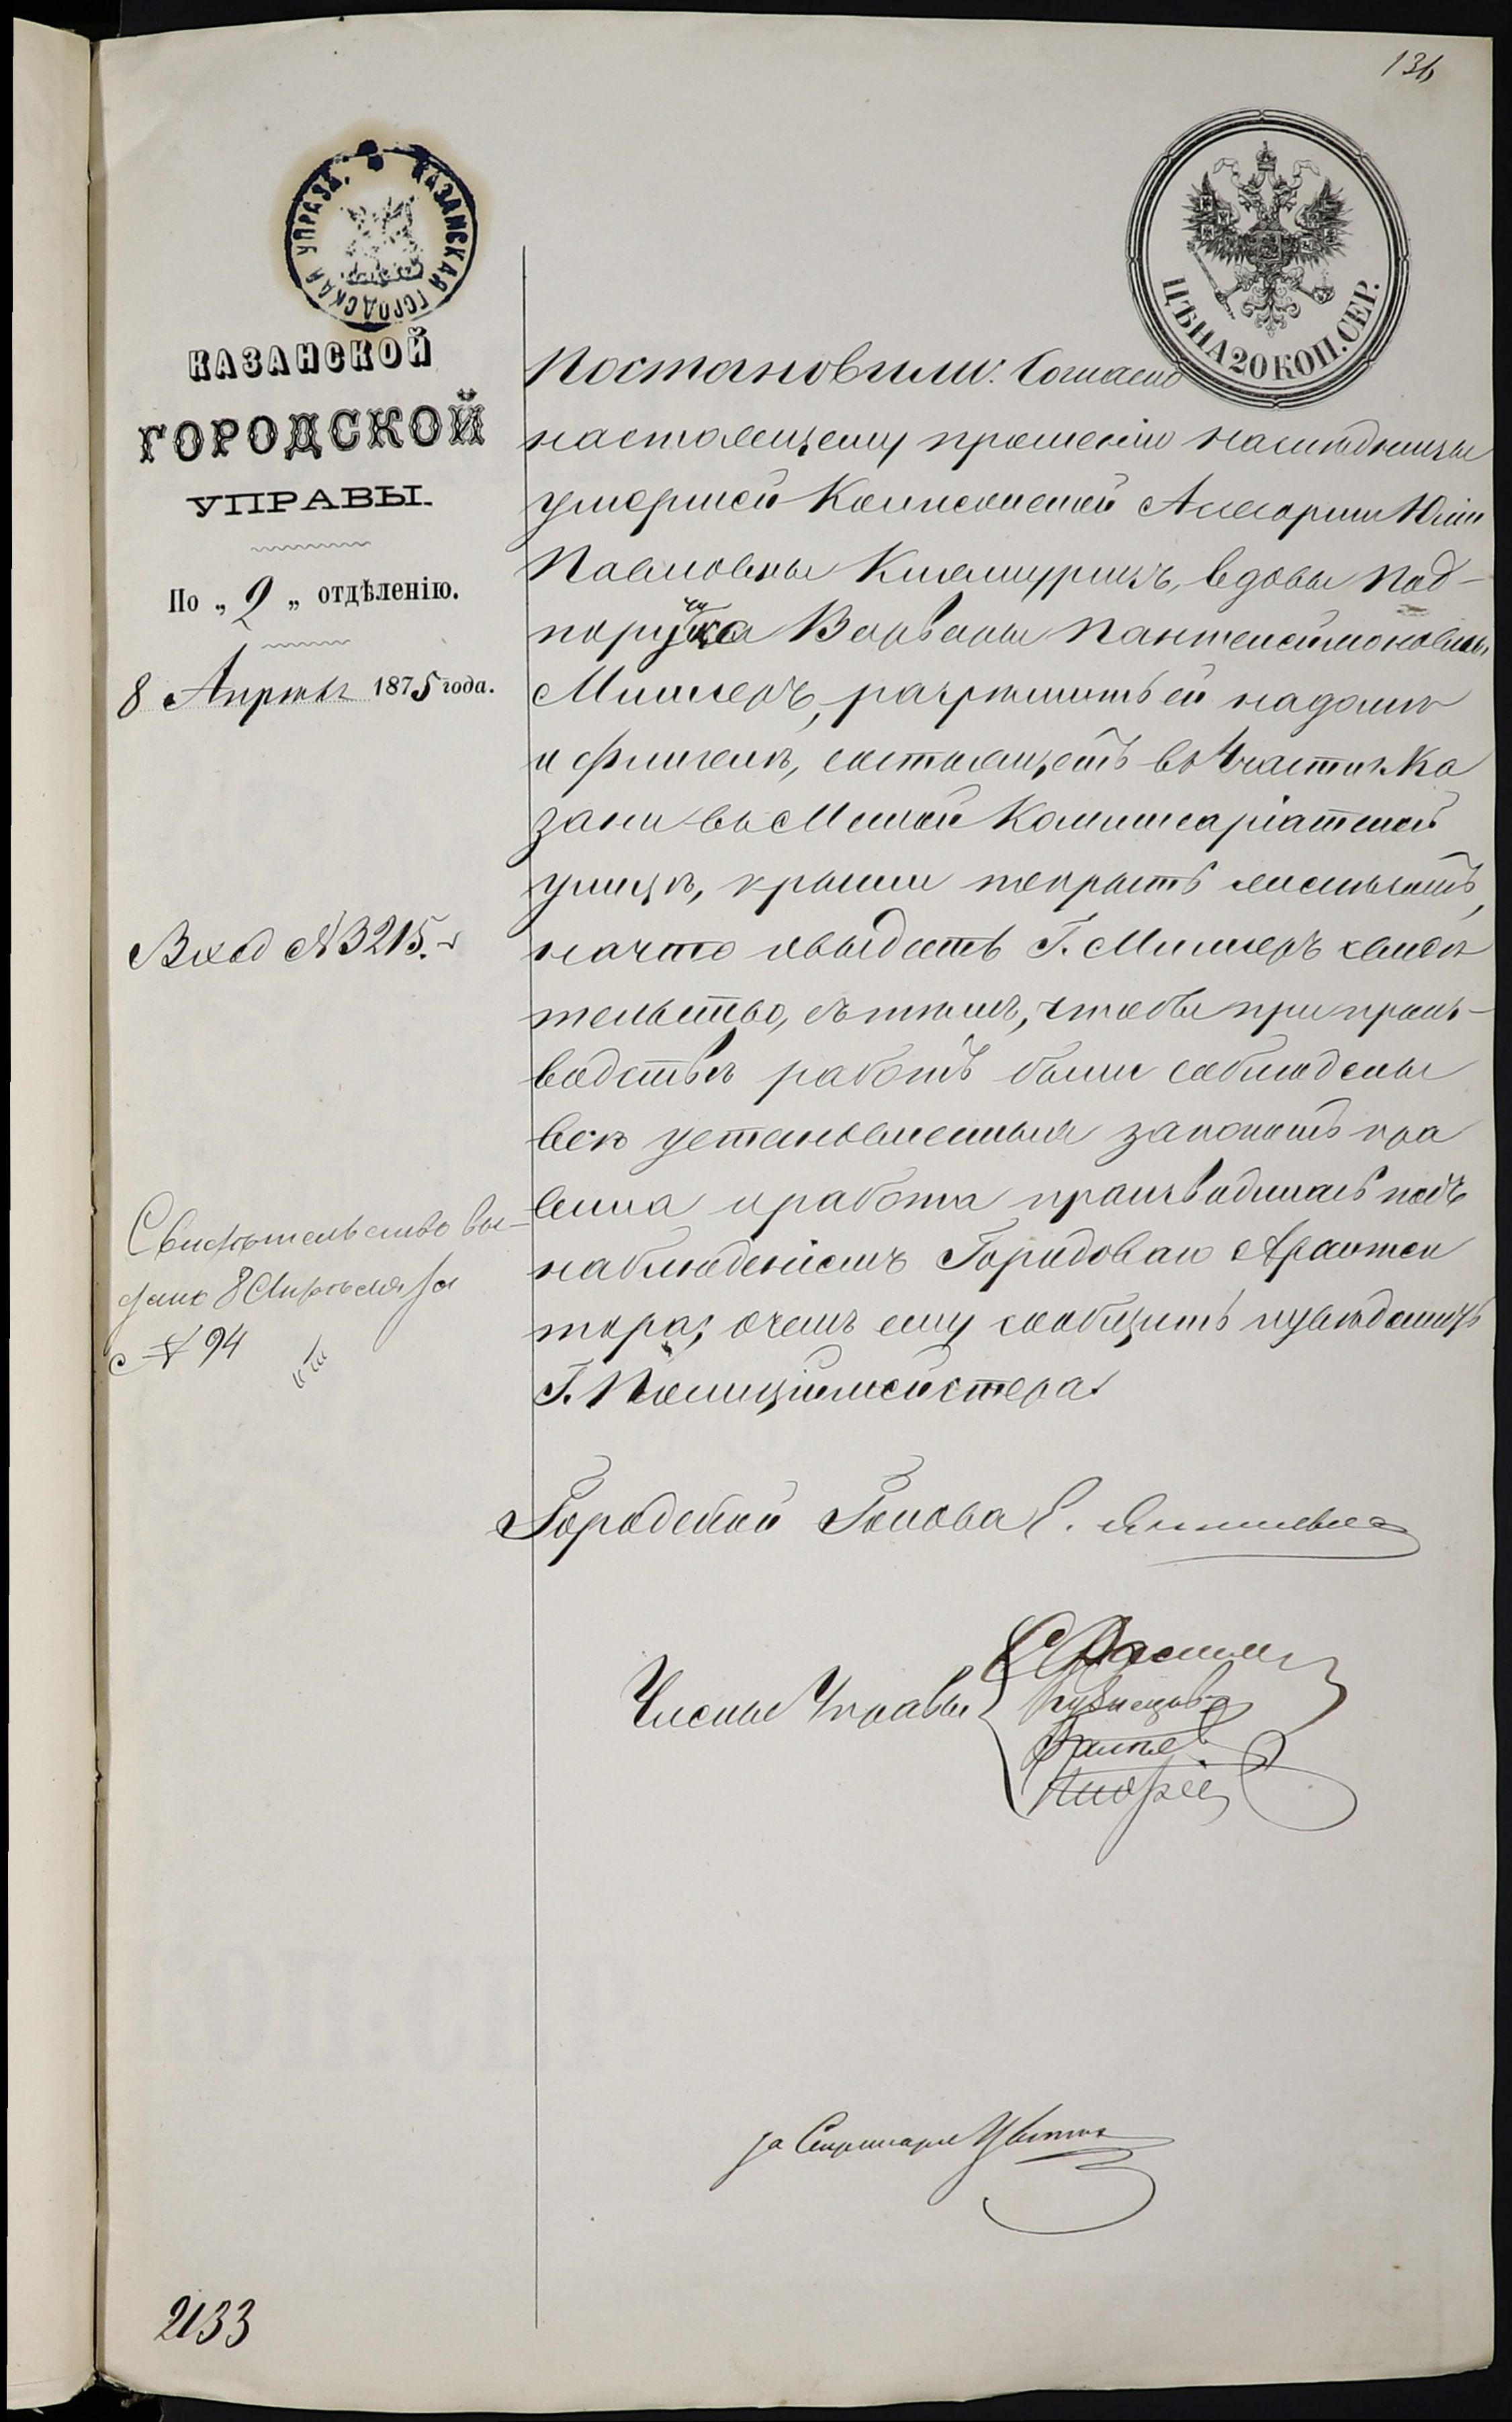 136
КАЗАНСКАЯ ГОРОДСКАЯ УПРАВА.
ЦѢНА 20 КОП. СЕР.
КАЗАНСКОЙ
ГОРОДСКОЙ
УПРАВЫ.
По „ 2 „ отдѣленію.
8 Апрѣля 1875 года.
Вход №3215.
Свидѣтельство вы-
дано 8 Апрѣля за
№ 94
Постановили: Согласно
настоящему прошенію наслѣдницы
умершей Коллежской Ассесорши Юліи
Павловны вдовы Под-
поручика Варвары Пантелеймоновны
Миллеръ, разрѣшить ей на домѣ
и флигелѣ, состоящихъ въ 1 части г. Ка
зани въ Малой Коммисаріатской
улицѣ, крыши покрыть желѣзомъ,
на что и выдать Г. Миллеръ свидѣ
тельство, съ тѣмъ, чтобы при произ-
водствѣ работъ были соблюдены
всѣ установленныя закономъ пра
вила и работа производилась подъ
наблюденіемъ Городоваго Архитек
тора; о чемъ ему сообщить и увѣдомить
Г. Полиціймейстера.
Городской Голова Е.
Члены Управы
Кузнецовъ
за Секретаря
2133